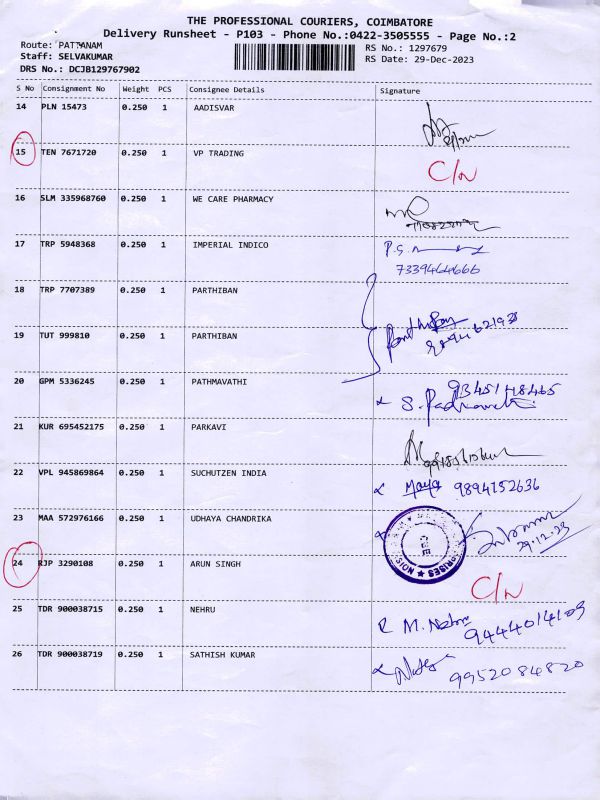 THE PROFESSIONAL COURIERS, COIMBATORE
Delivery Runsheet - P103 - Phone No.:0422-3505555 - Page No.:2
Route: PATTANAM
RS No.: 1297679
Staff: SELVAKUMAR
RS Date: 29-Dec-2023
DRS No.: DCJB129767902
S No Consignment No Weight PCS Consignee Details Signature
14 PLN 15473 0.250 1 AADISVAR
15 TEN 7671720 0.250 1 VP TRADING C/N
16 SLM 335968760 0.250 1 WE CARE PHARMACY
17 TRP 5948368 0.250 1 IMPERIAL INDICO P.S.
7339464666
18 TRP 7707389 0.250 1 PARTHIBAN
19 TUT 999810 0.250 1 PARTHIBAN
20 GPM 5336245 0.250 1 PATHMAVATHI
S.
21 KUR 695452175 0.250 1 PARKAVI
22 VPL 945869864 0.250 1 SUCHUTZEN INDIA Maya 9894152636
23 MAA 572976166 0.250 1 UDHAYA CHANDRIKA
29.12.23
24 RJP 3290108 0.250 1 ARUN SINGH C/N
25 TDR 900038715 0.250 1 NEHRU
R M. 9444014109
26 TDR 900038719 0.250 1 SATHISH KUMAR
9952084820